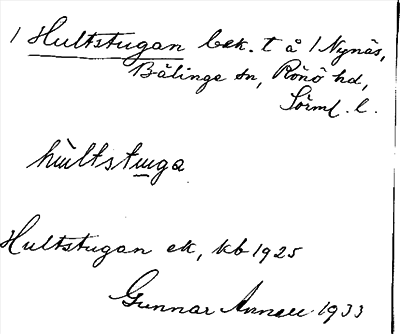 1 Hultstugan bek. t å 1 Nynäs,
Bälinge sn, Rönö hd,
Sörml. l.
hultstuga
Hultstugan ek, kb 1925
Gunnar 1933